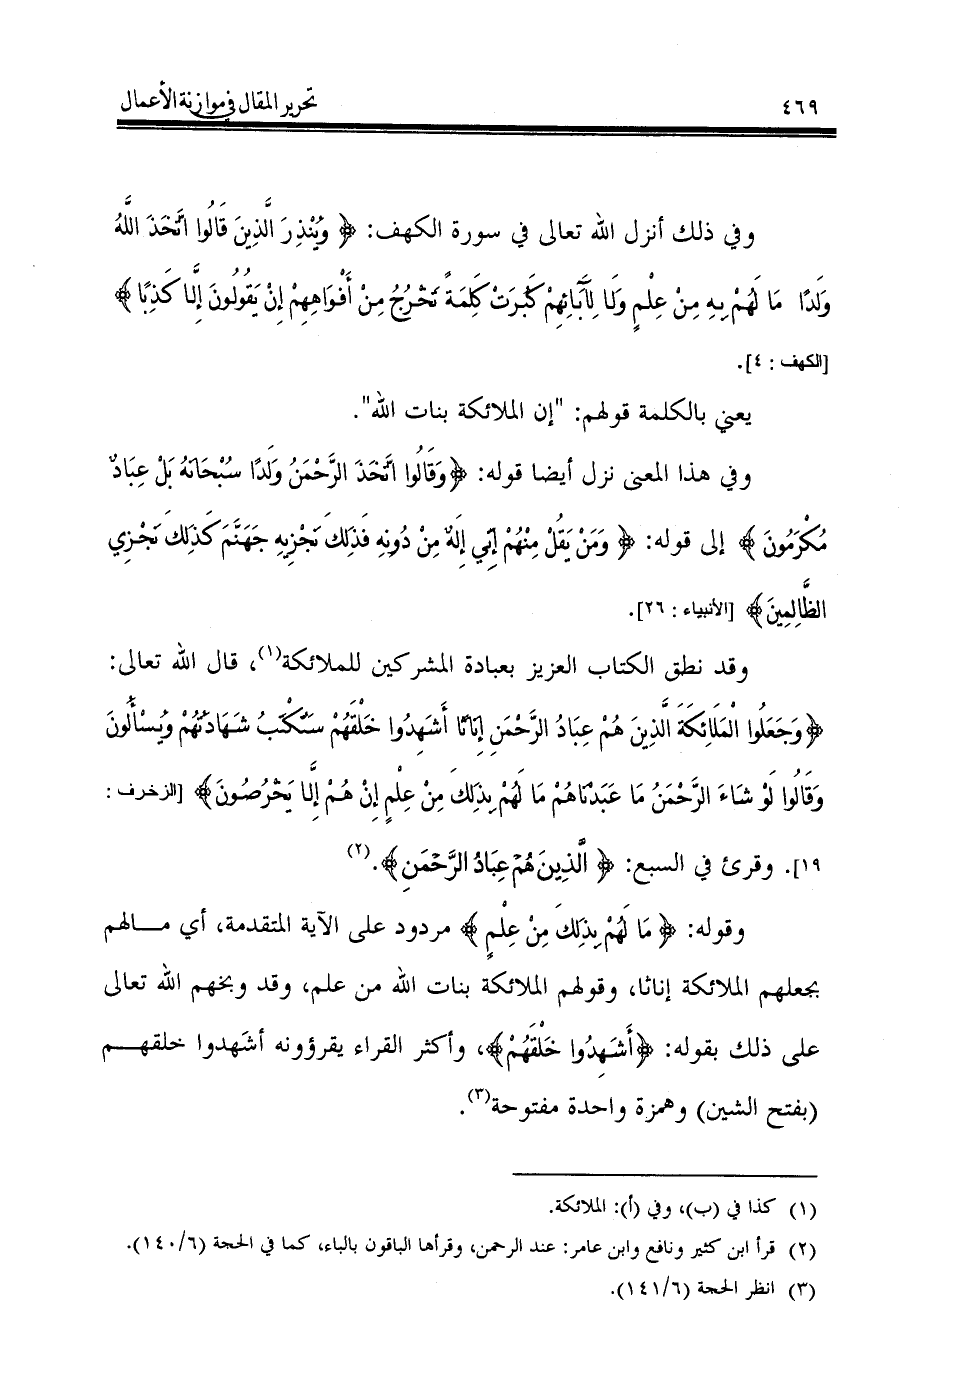 ٤٦٩ تحرير المقال في موازنة الأعمال
وفي ذلك أنزل الله تعالى في سورة الكهف: ﴿ وَيُنْذِرَ الَّذِينَ قَالُوا اتَّخَذَ اللَّهُ
وَلَدًا مَا لَهُمْ بِهِ مِنْ عِلْمٍ وَلَا لِآَبَائِهِمْ كَبُرَتْ كَلِمَةً تَخْرُجُ مِنْ أَفْوَاهِهِمْ إِنْ يَقُولُونَ إِلَّا كَذِبًا ﴾
[الكهف : ٤].
يعني بالكلمة قولهم: "إن الملائكة بنات الله".
وفي هذا المعنى نزل أيضا قوله: ﴿وَقَالُوا اتَّخَذَ الرَّحْمَنُ وَلَدًا سُبْحَانَهُ بَلْ عِبَادٌ
مُكْرَمُونَ ﴾ إلى قوله: ﴿ وَمَنْ يَقُلْ مِنْهُمْ إِنِّي إِلَهٌ مِنْ دُونِهِ فَذَلِكَ نَجْزِيهِ جَهَنَّمَ كَذَلِكَ نَجْزِي
الظَّالِمِينَ﴾ [الأنبياء : ٢٦].
وقد نطق الكتاب العزيز بعبادة المشركين للملائكة(١)، قال الله تعالى:
﴿وَجَعَلُوا الْمَلَائِكَةَ الَّذِينَ هُمْ عِبَادُ الرَّحْمَنِ إِنَاثًا أَشَهِدُوا خَلْقَهُمْ سَتُكْتَبُ شَهَادَتُهُمْ وَيُسْأَلُونَ
وَقَالُوا لَوْ شَاءَ الرَّحْمَنُ مَا عَبَدْنَاهُمْ مَا لَهُمْ بِذَلِكَ مِنْ عِلْمٍ إِنْ هُمْ إِلَّا يَخْرُصُونَ﴾ [الزخرف :
١٩]. وقرئ في السبع: ﴿ الَّذِينَ هُمْ عِبَادُ الرَّحْمَنِ﴾.(٢)
وقوله: ﴿ مَا لَهُمْ بِذَلِكَ مِنْ عِلْمٍ ﴾ مردود على الآية المتقدمة، أي مـــالهم
بجعلهم الملائكة إناثا، وقولهم الملائكة بنات الله من علم، وقد وبخهم الله تعالى
على ذلك بقوله: ﴿أَشَهِدُوا خَلْقَهُمْ﴾، وأكثر القراء يقرؤونه أشهدوا خلقهـــم
(بفتح الشين) وهمزة واحدة مفتوحة(٣).
(١) كذا في (ب)، وفي (أ): الملائكة.
(٢) قرأ ابن كثير ونافع وابن عامر: عند الرحمن، وقرأها الباقون بالباء، كما في الحجة (١٤٠/٦).
(٣) انظر الحجة (١٤١/٦).